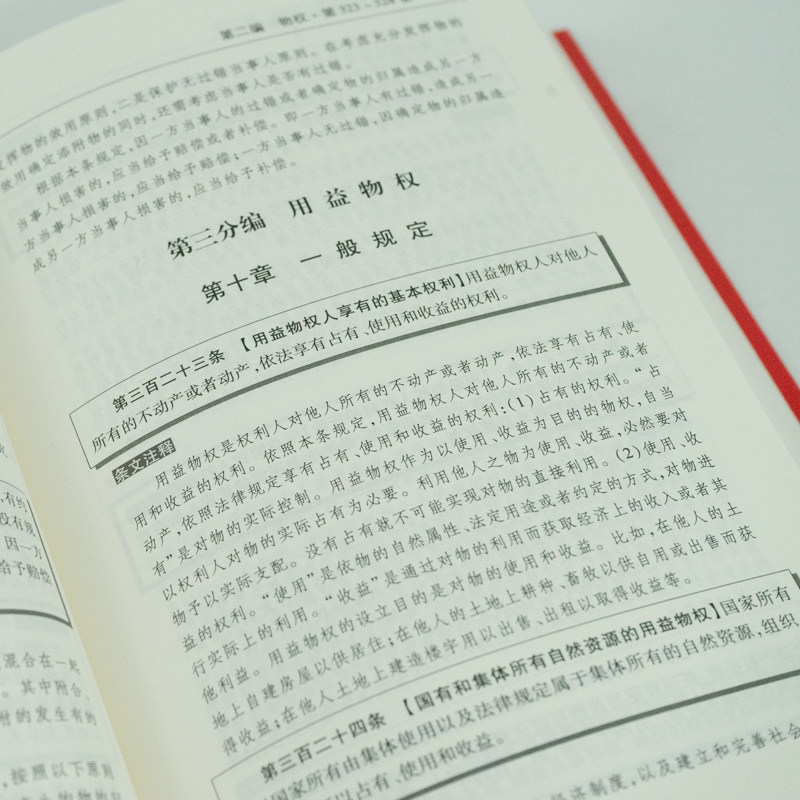 第二编 物权·第323-324条
发挥物的效用原则,二是保护无过错当事人原则。在考虑充分发挥物的
效用确定添附物的同时,还需考虑当事人是否有过错。
根据本条规定,因一方当事人的过错或者确定物的归属造成另一方
当事人损害的,应当给予赔偿或者补偿。即一方当事人有过错,造成另一
方当事人损害的,应当给予赔偿;一方当事人无过错,因确定物的归属造
成另一方当事人损害的,应当给予补偿。
第三分编 用益物权
第十章 一般规定
第三百二十三条 【用益物权人享有的基本权利】用益物权人对他人
所有的不动产或者动产,依法享有占有、使用和收益的权利。
条文注释
用益物权是权利人对他人所有的不动产或者动产,依法享有占有、使
用和收益的权利。依照本条规定,用益物权人对他人所有的不动产或者
动产,依照法律规定享有占有、使用和收益的权利:(1)占有的权利。“占
有”是对物的实际控制。用益物权作为以使用、收益为目的的物权,自当
以权利人对物的实际占有为必要。利用他人之物为使用、收益,必然要对
物予以实际支配。没有占有就不可能实现对物的直接利用。(2)使用、收
益的权利。“使用”是依物的自然属性、法定用途或者约定的方式,对物进
行实际上的利用。“收益”是通过对物的利用而获取经济上的收入或者其
他利益。用益物权的设立目的是对物的使用和收益。比如,在他人的土
地上自建房屋以供居住;在他人的土地上耕种、畜牧以供自用或出售而获
得收益;在他人土地上建造楼宇用以出售、出租以取得收益等。
第三百二十四条 【国有和集体所有自然资源的用益物权】国家所有
国家所有由集体使用以及法律规定属于集体所有的自然资源,组织
以占有、使用和收益。
经济制度,以及建立和完善社会
给予赔偿
混合在一起
。其中附合、
附的发生有的
,按照以下原则